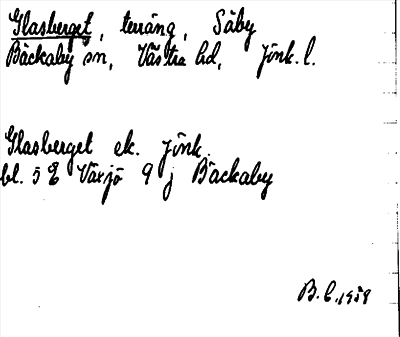 Glasberget, terräng, Säby
Bäckaby sn, Västra hd, Jönk. l.
Glasberget ek. Jönk.
bl. 5 E Växjö 9 j Bäckaby
B. C. 1959